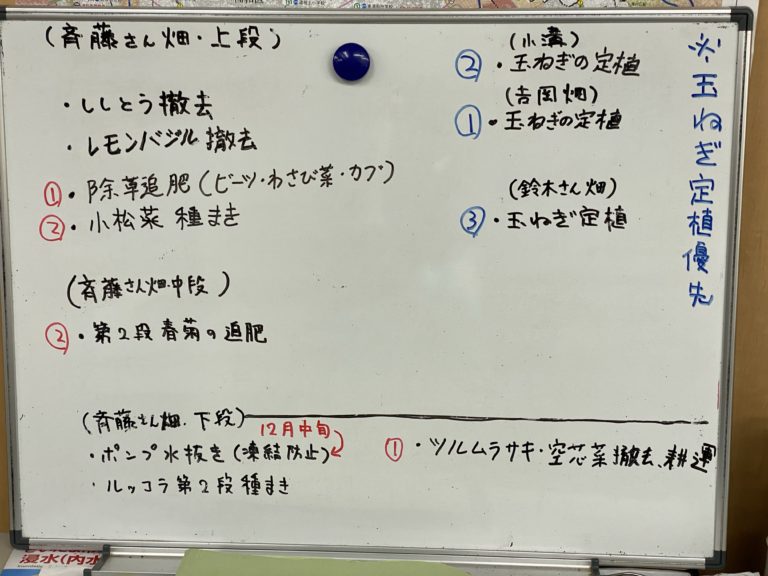 (斉藤さん畑・上段)
・ししとう撤去
・レモンバジル撤去
①・除草追肥(ビーツ・わさび菜・カブ)
②・小松菜 種まき
(斉藤さん畑.中段)
③・第2段春菊の追肥
(斉藤さん畑.下段)
12月中旬
・ポンプ水抜き(凍結防止)
・ルッコラ第2段種まき
①・ツルムラサキ・空芯菜撤去、耕運
(小溝)
②・玉ねぎの定植
(吉岡畑)
①・玉ねぎの定植
(鈴木さん畑)
③・玉ねぎ定植
※玉ねぎ定植優先
浸水(内水